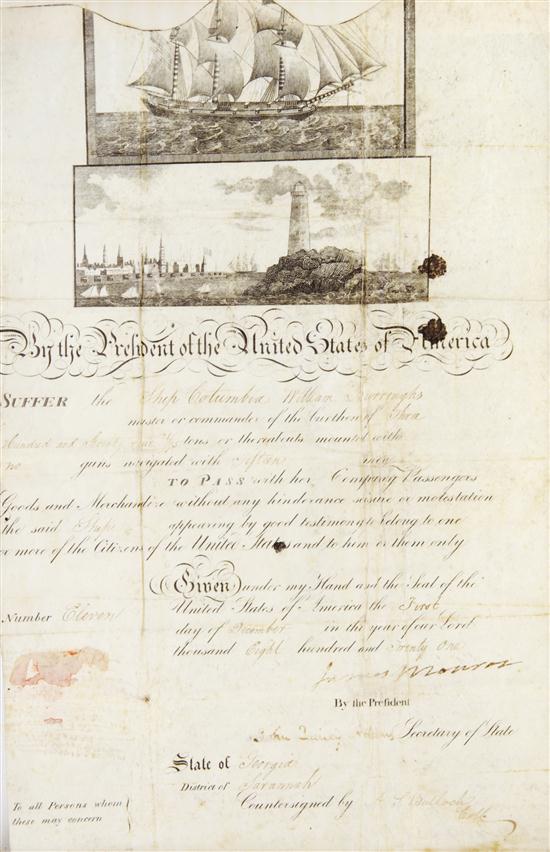 By the President of the United States of America
SUFFER the Ship Columbia William Burroughs
master or commander of the burthen of Three
Hundred and tons or thereabouts mounted with
no guns navigated with fifteen men
TO PASS with her Company Passengers
Goods and Merchandize without any hinderance seisure or molestation
the said Ship appearing by good testimony to belong to one
or more of the Citizens of the United States and to him or them only
Given under my Hand and the Seal of the
United States of America the First
Number Eleven
day of December in the year of our Lord
thousand Eight hundred and Twenty One
James Monroe
By the President
John Quincy Adams Secretary of State
State of Georgia
District of Savannah
Countersigned by A S Bulloch
Coll
To all Persons whom
these may concern